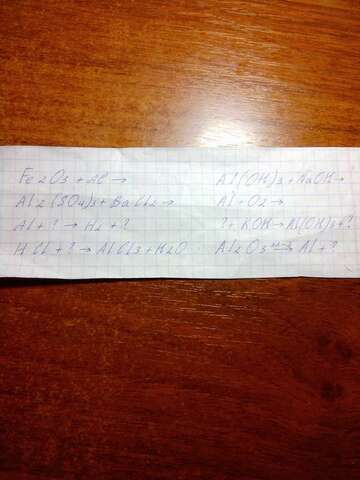 Fe2O3 + Al →
Al2(SO4)3 + BaCl2 →
Al + ? → H2 + ?
HCl + ? → AlCl3 + H2O
Al(OH)3 + NaOH →
Al + O2 →
? + KOH → Al(OH)3 + ?
Al2O3 → Al + ?